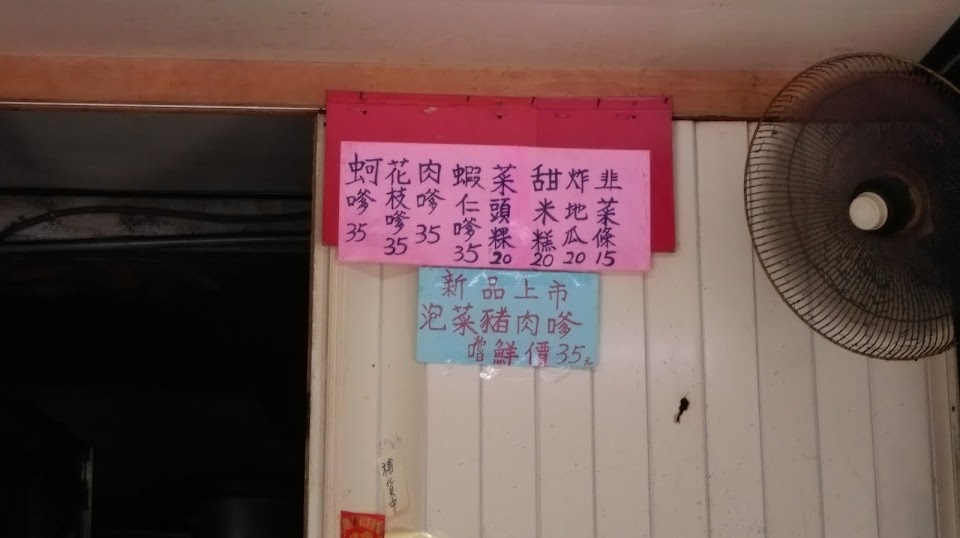 蚵嗲35
花枝嗲35
肉嗲35
蝦仁嗲35
菜頭粿20
甜米糕20
炸地瓜20
韭菜條15
新品上市
泡菜豬肉嗲
嚐鮮價35元
補貨中